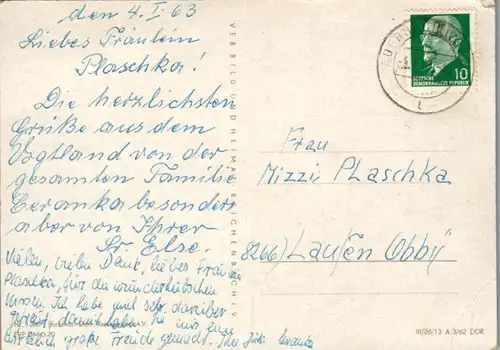 den 4. I. 63
Liebes Fräulein
Plaschka!
Die herzlichsten
Grüße aus dem
Vogtland von der
gesamten Familie
Ceranka besonders
aber von Ihrer
Sr. Else.
Vielen, vielen Dank, liebes Fräulein
Plaschka, für die wunderhübschen
Ich habe mich sehr darüber
gefreut, damit haben Sie mir eine
große Freude gemacht. Ihre
VEB BILD UND HEIMAT REICHENBACH I. V.
10
DEUTSCHE
DEMOKRATISCHE REPUBLIK
Frau
Mizzi Plaschka
8266) Laufen Obby
III/26/13 A 3/62 DDR